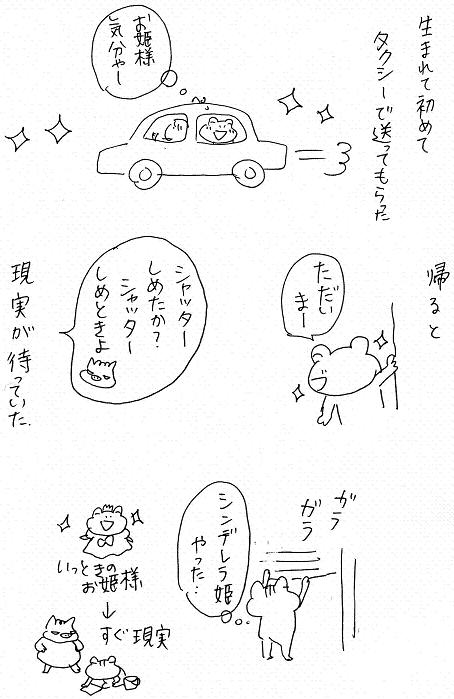 生まれて初めて
タクシーで送ってもらった
お姫様
気分やー
帰ると
ただい
まー
シャッター
しめたか?
シャッター
しめときよ
現実が待っていた.
ガラ
ガラ
シンデレラ姫
やった…
いっときの
お姫様
↓
すぐ現実